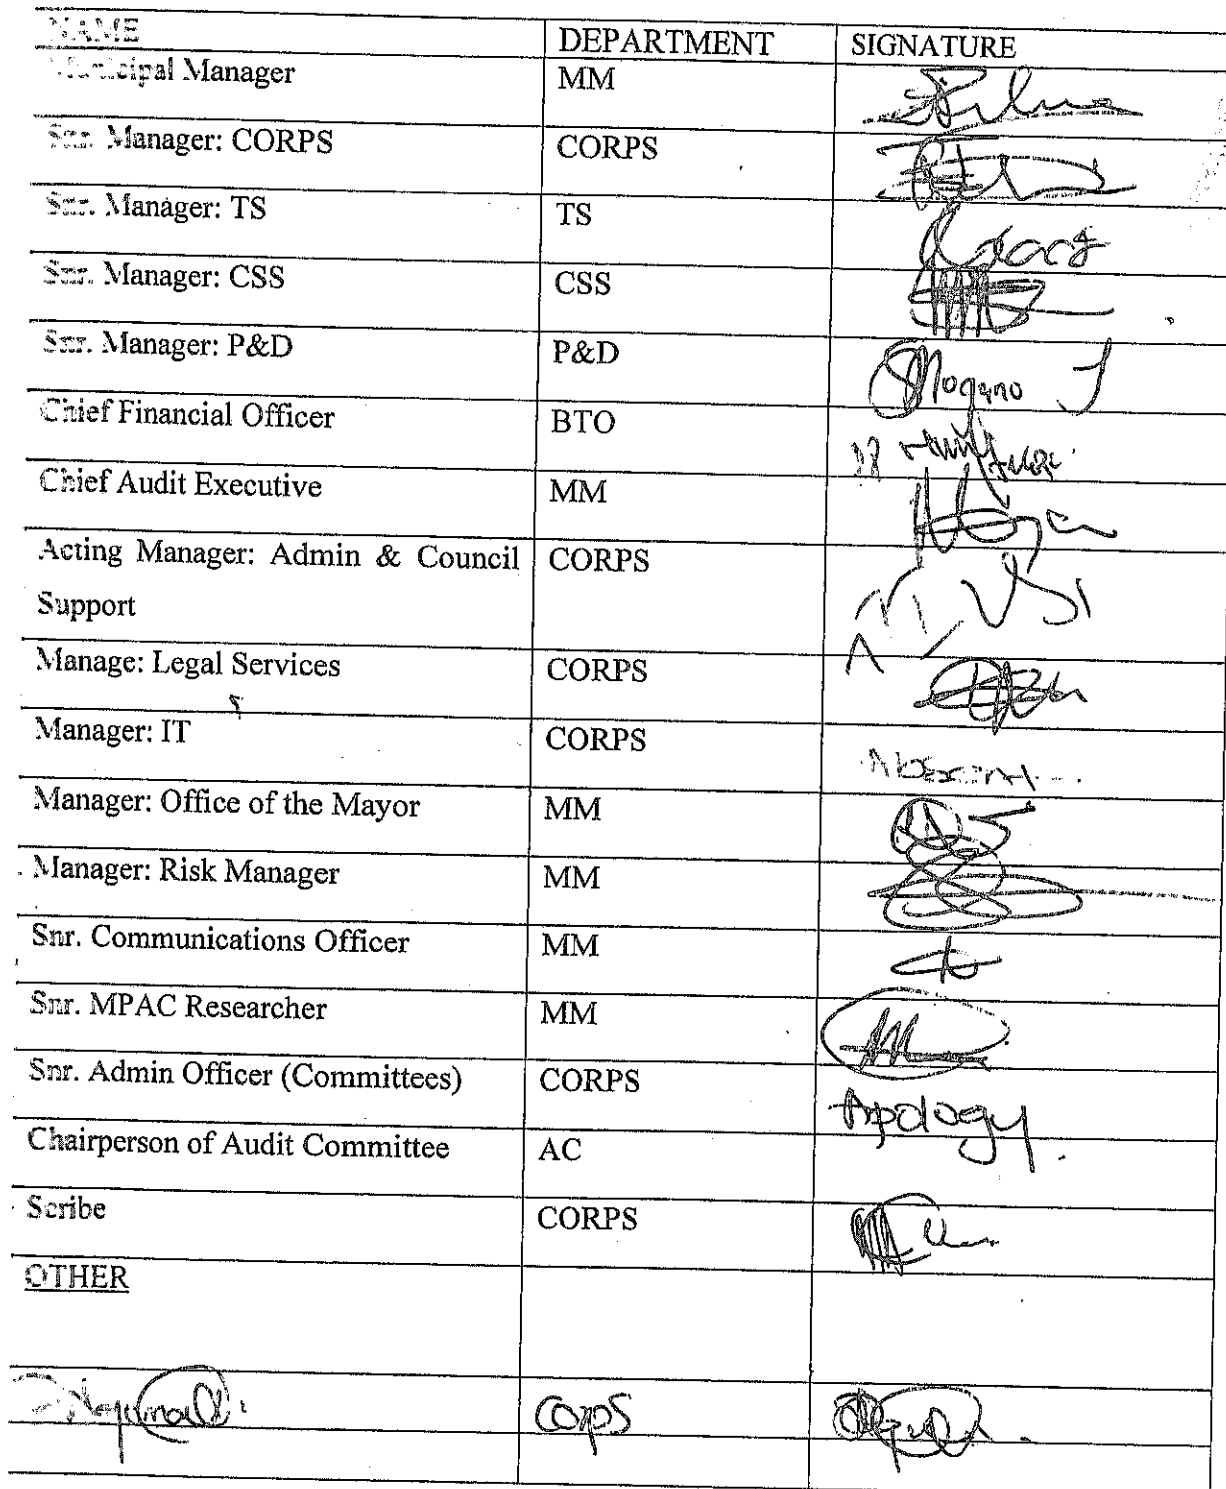 NAME DEPARTMENT SIGNATURE
Municipal Manager MM
Snr. Manager: CORPS CORPS
Snr. Manager: TS TS
Snr. Manager: CSS CSS
Snr. Manager: P&D P&D Mogano J
Chief Financial Officer BTO
Chief Audit Executive MM
Acting Manager: Admin & Council CORPS
Support
Manage: Legal Services CORPS
Manager: IT CORPS Absent
Manager: Office of the Mayor MM
Manager: Risk Manager MM
Snr. Communications Officer MM
Snr. MPAC Researcher MM
Snr. Admin Officer (Committees) CORPS Apology
Chairperson of Audit Committee AC
Scribe CORPS
OTHER
Corps